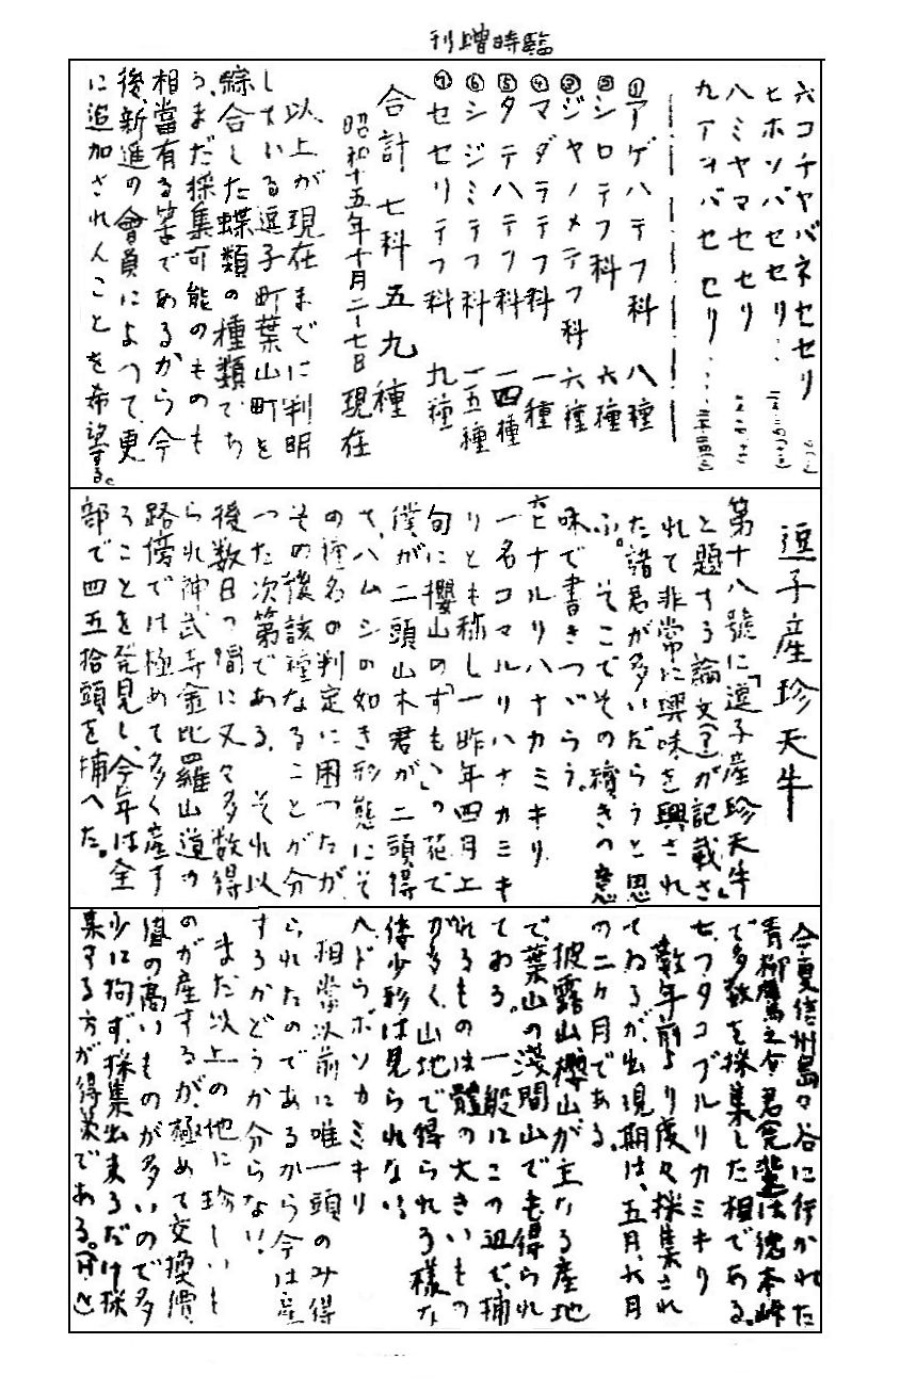 臨時増刊
六コチヤバネセセリ
七ホソバセセリ
八ミヤマセセリ
九アヲバセセリ
①アゲハテフ科 八種
②シロテフ科 六種
③ジヤノメテフ科 六種
④マダラテフ科 一種
⑤タテハテフ科 一四種
⑥シジミテフ科 一五種
⑦セセリテフ科 九種
合計七科五九種
昭和十五年十月二十七日現在
以上が現在までに判明
している逗子町葉山町を
綜合した蝶類の種類でち
う、まだ採集可能のものも
相當有る筈であるから今
後、新進の會員によつて、更
に追加されんことを希望する。
逗子産珍天牛
第十八號に「逗子産珍天牛」
と題する論文(?)が記載さ
れて非常に興味を興され
た諸君が多いだらうと思
ふ。そこでその續きの意
味で書きつづらう。
六ヒナルリハナカミキリ
一名コマルリハナカミキ
リとも称し一昨年四月上
旬に櫻山の「ずもゝ」の花で
僕が二頭山木君が二頭得
て、ハムシの如き形態にそ
の種名の判定に困つたが
その後該種なることが分
つた次第である。それ以
後数日の間に又々多数得
られ神武寺金比羅山道の
路傍では極めて多く産す
ることを発見し、今年は全
部で四五拾頭を捕へた。
今夏信州島々谷に行かれた
青柳 君 は徳本峠
で多数を採集した相である。
七、フタコブルリカミキリ
数年前より度々採集され
てゐるが、出現期は、五月、六月
の二ヶ月である。
披露山、櫻山が主なる産地
で、葉山の淺間山でも得られ
てゐる。一般にこの辺で、捕
れるものは體の大きいもの
が多く、山地で得られる様な
倭少形は見られない。
八、ドウボソカミキリ
相當以前に唯一頭のみ得
られたのであるから今は産
するかどうか分らない。
まだ以上の他に珍しいも
のが産するが、極めて交換價
値の高いものが多いので多
少に拘ず、採集出来るだけ採
集する方が得策である。